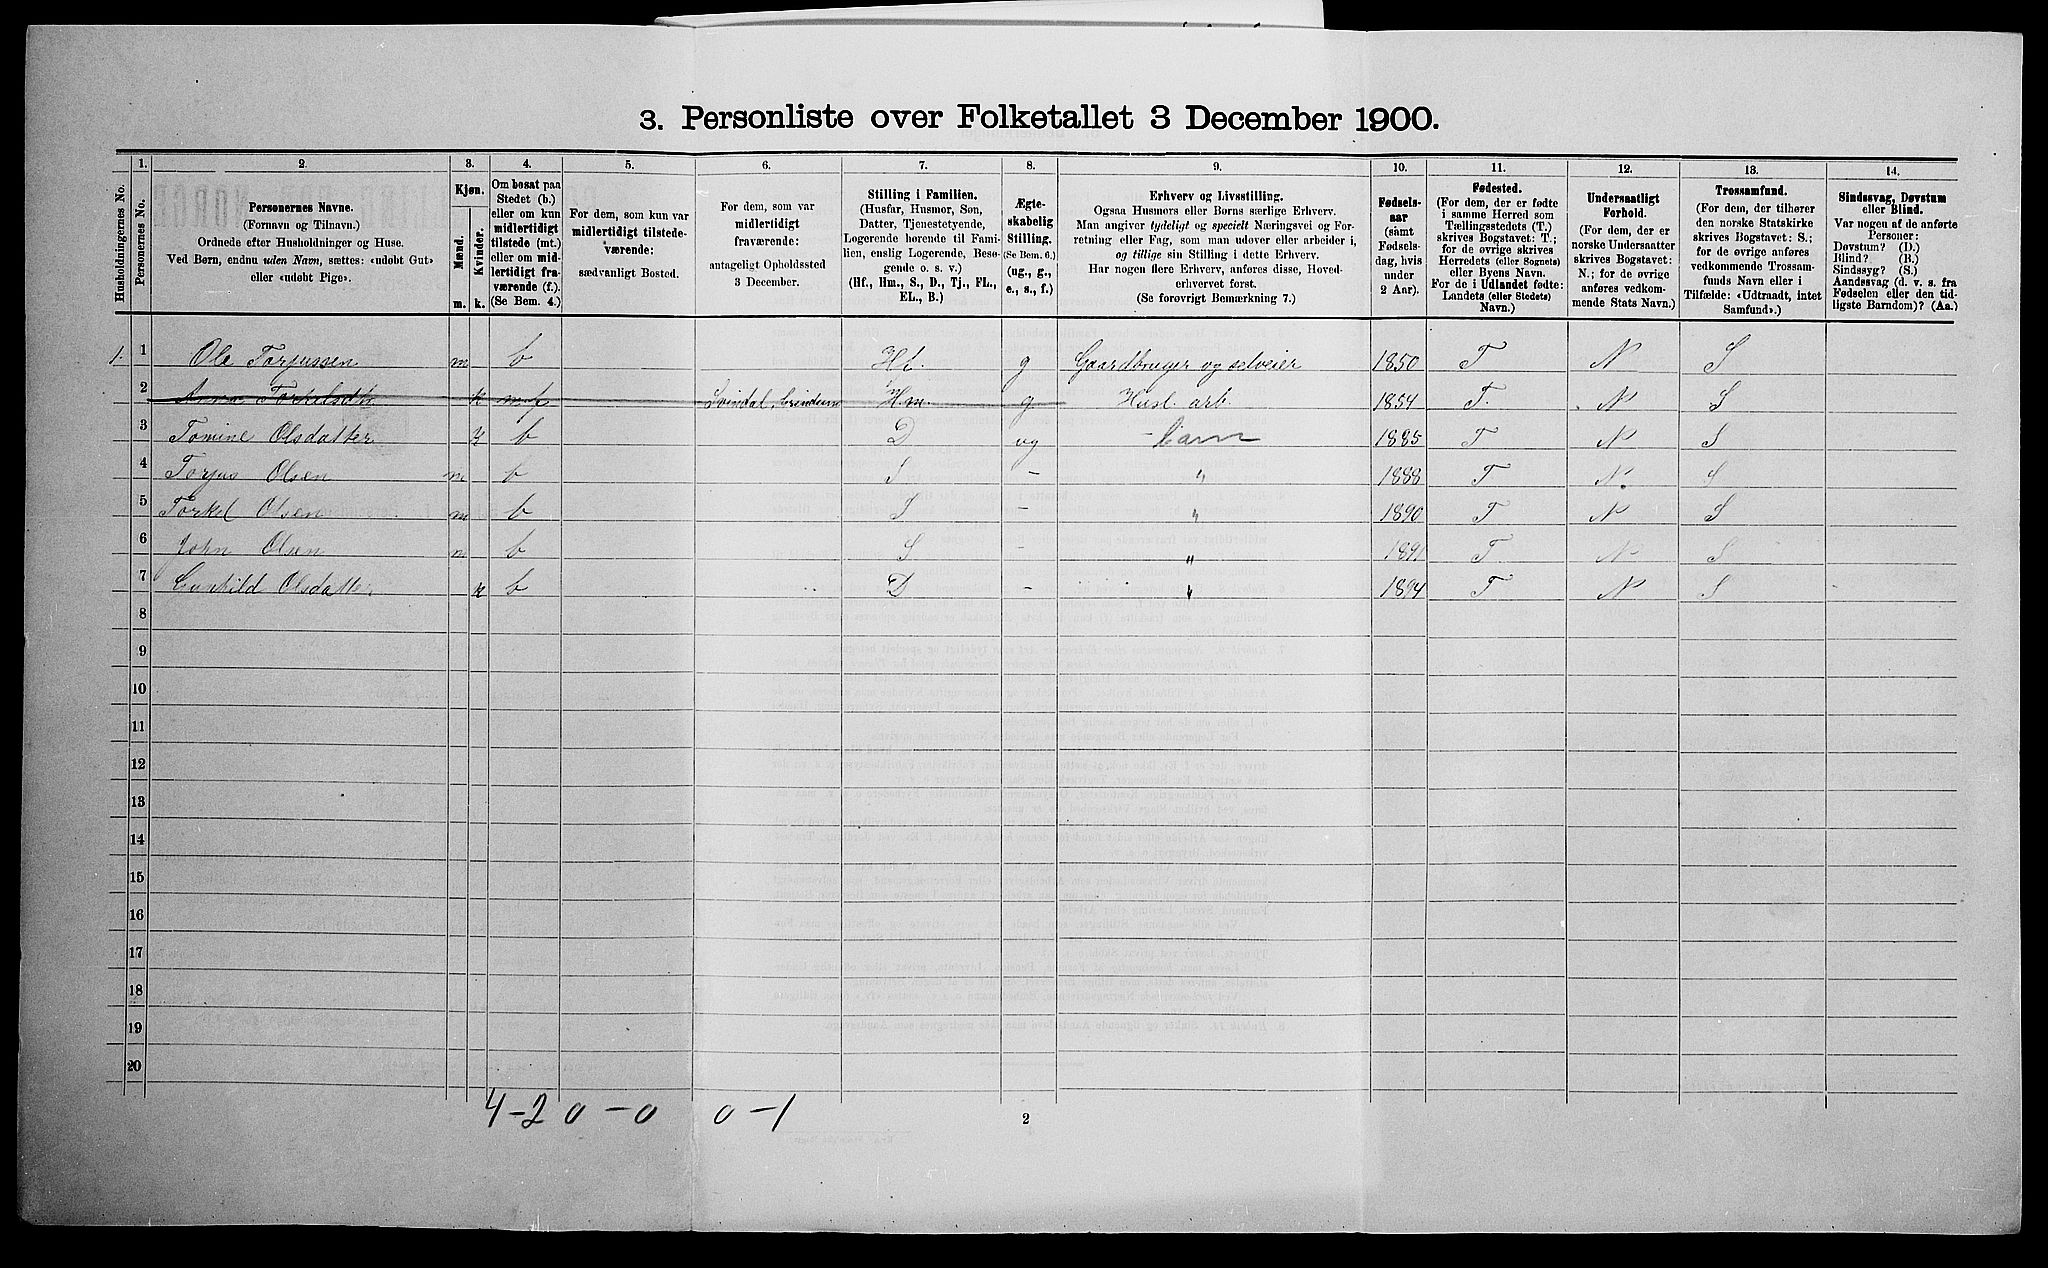 3. Personliste over Folketallet 3 December 1900.
Husholdningernes No.
1. Personernes No.
2. Personernes Navne.
(Fornavn og Tilnavn.)
Ordnede efter Husholdninger og Huse.
Ved Børn, endnu uden Navn, sættes: «udøbt Gut»
eller «udøbt Pige».
3. Kjøn.
Mænd. Kvinder.
m. k.
4. Om bosat paa
Stedet (b.)
eller om kun
midlertidigt
tilstede (mt.)
eller om mid-
lertidigt fra-
værende (f.)
(Se Bem. 4.)
5. For dem, som kun var
midlertidigt tilstede-
værende:
sædvanligt Bosted.
6. For dem, som var
midlertidigt
fraværende:
antageligt Opholdssted
3 December.
7. Stilling i Familien.
(Husfar, Husmor, Søn,
Datter, Tjenestetyende,
Logerende hørende til Fami-
lien, enslig Logerende, Besø-
gende o. s. v.)
(Hf., Hm., S., D., Tj., FL.,
EL., B.)
8. Ægte-
skabelig
Stilling.
(Se Bem. 6.)
(ug., g.,
e., s., f.)
9. Erhverv og Livsstilling.
Ogsaa Husmors eller Børns særlige Erhverv.
Man angiver tydeligt og specielt Næringsvei og For-
retning eller Fag, som man udøver eller arbeider i,
og tillige sin Stilling i dette Erhverv.
Har nogen flere Erhverv, anføres disse, Hoved-
erhvervet først.
(Se forøvrigt Bemærkning 7.)
10. Fødsels-
aar
(samt
Fødsels-
dag, hvis
under
2 Aar).
11. Fødested.
(For dem, der er fødte
i samme Herred som
Tællingsstedets (T.)
skrives Bogstavet: T.;
for de øvrige skrives
Herredets (eller Sognets)
eller Byens Navn.
For de i Udlandet fødte:
Landets (eller Stedets)
Navn.)
12. Undersaatligt
Forhold.
(For dem, der er
norske Undersaatter
skrives Bogstavet:
N.; for de øvrige
anføres vedkom-
mende Stats Navn.)
13. Trossamfund.
(For dem, der tilhører
den norske Statskirke
skrives Bogstavet: S.;
for de øvrige anføres
vedkommende Trossam-
funds Navn eller i
Tilfælde: «Udtraadt, intet
Samfund».)
14. Sindssvag, Døvstum
eller Blind.
Var nogen af de anførte
Personer:
Døvstum? (D.)
Blind? (B.)
Sindssyg? (S.)
Aandssvag (d. v. s. fra
Fødselen eller den tid-
ligste Barndom)? (Aa.)
1. 1 Ole Torjussen m b Hf. g Gaardbruger og selveier 1850 T N S
2 Anna Torkelsdtr k mf Svindal, Hm. g Husl. arb. 1854 T. N S
3 Tomine Olsdatter k b D ug Barn 1885 T N S
4 Torjus Olsen m b S - " 1888 T N. S
5 Torkel Olsen m b S - " 1890 T N S
6 John Olsen m b S - " 1891 T N S
7 Gunhild Olsdatter k b D - " 1894 T N S
8
9
10
11
12
13
14
15
16
17
18
19
20
4-2 0-0 0-1
2